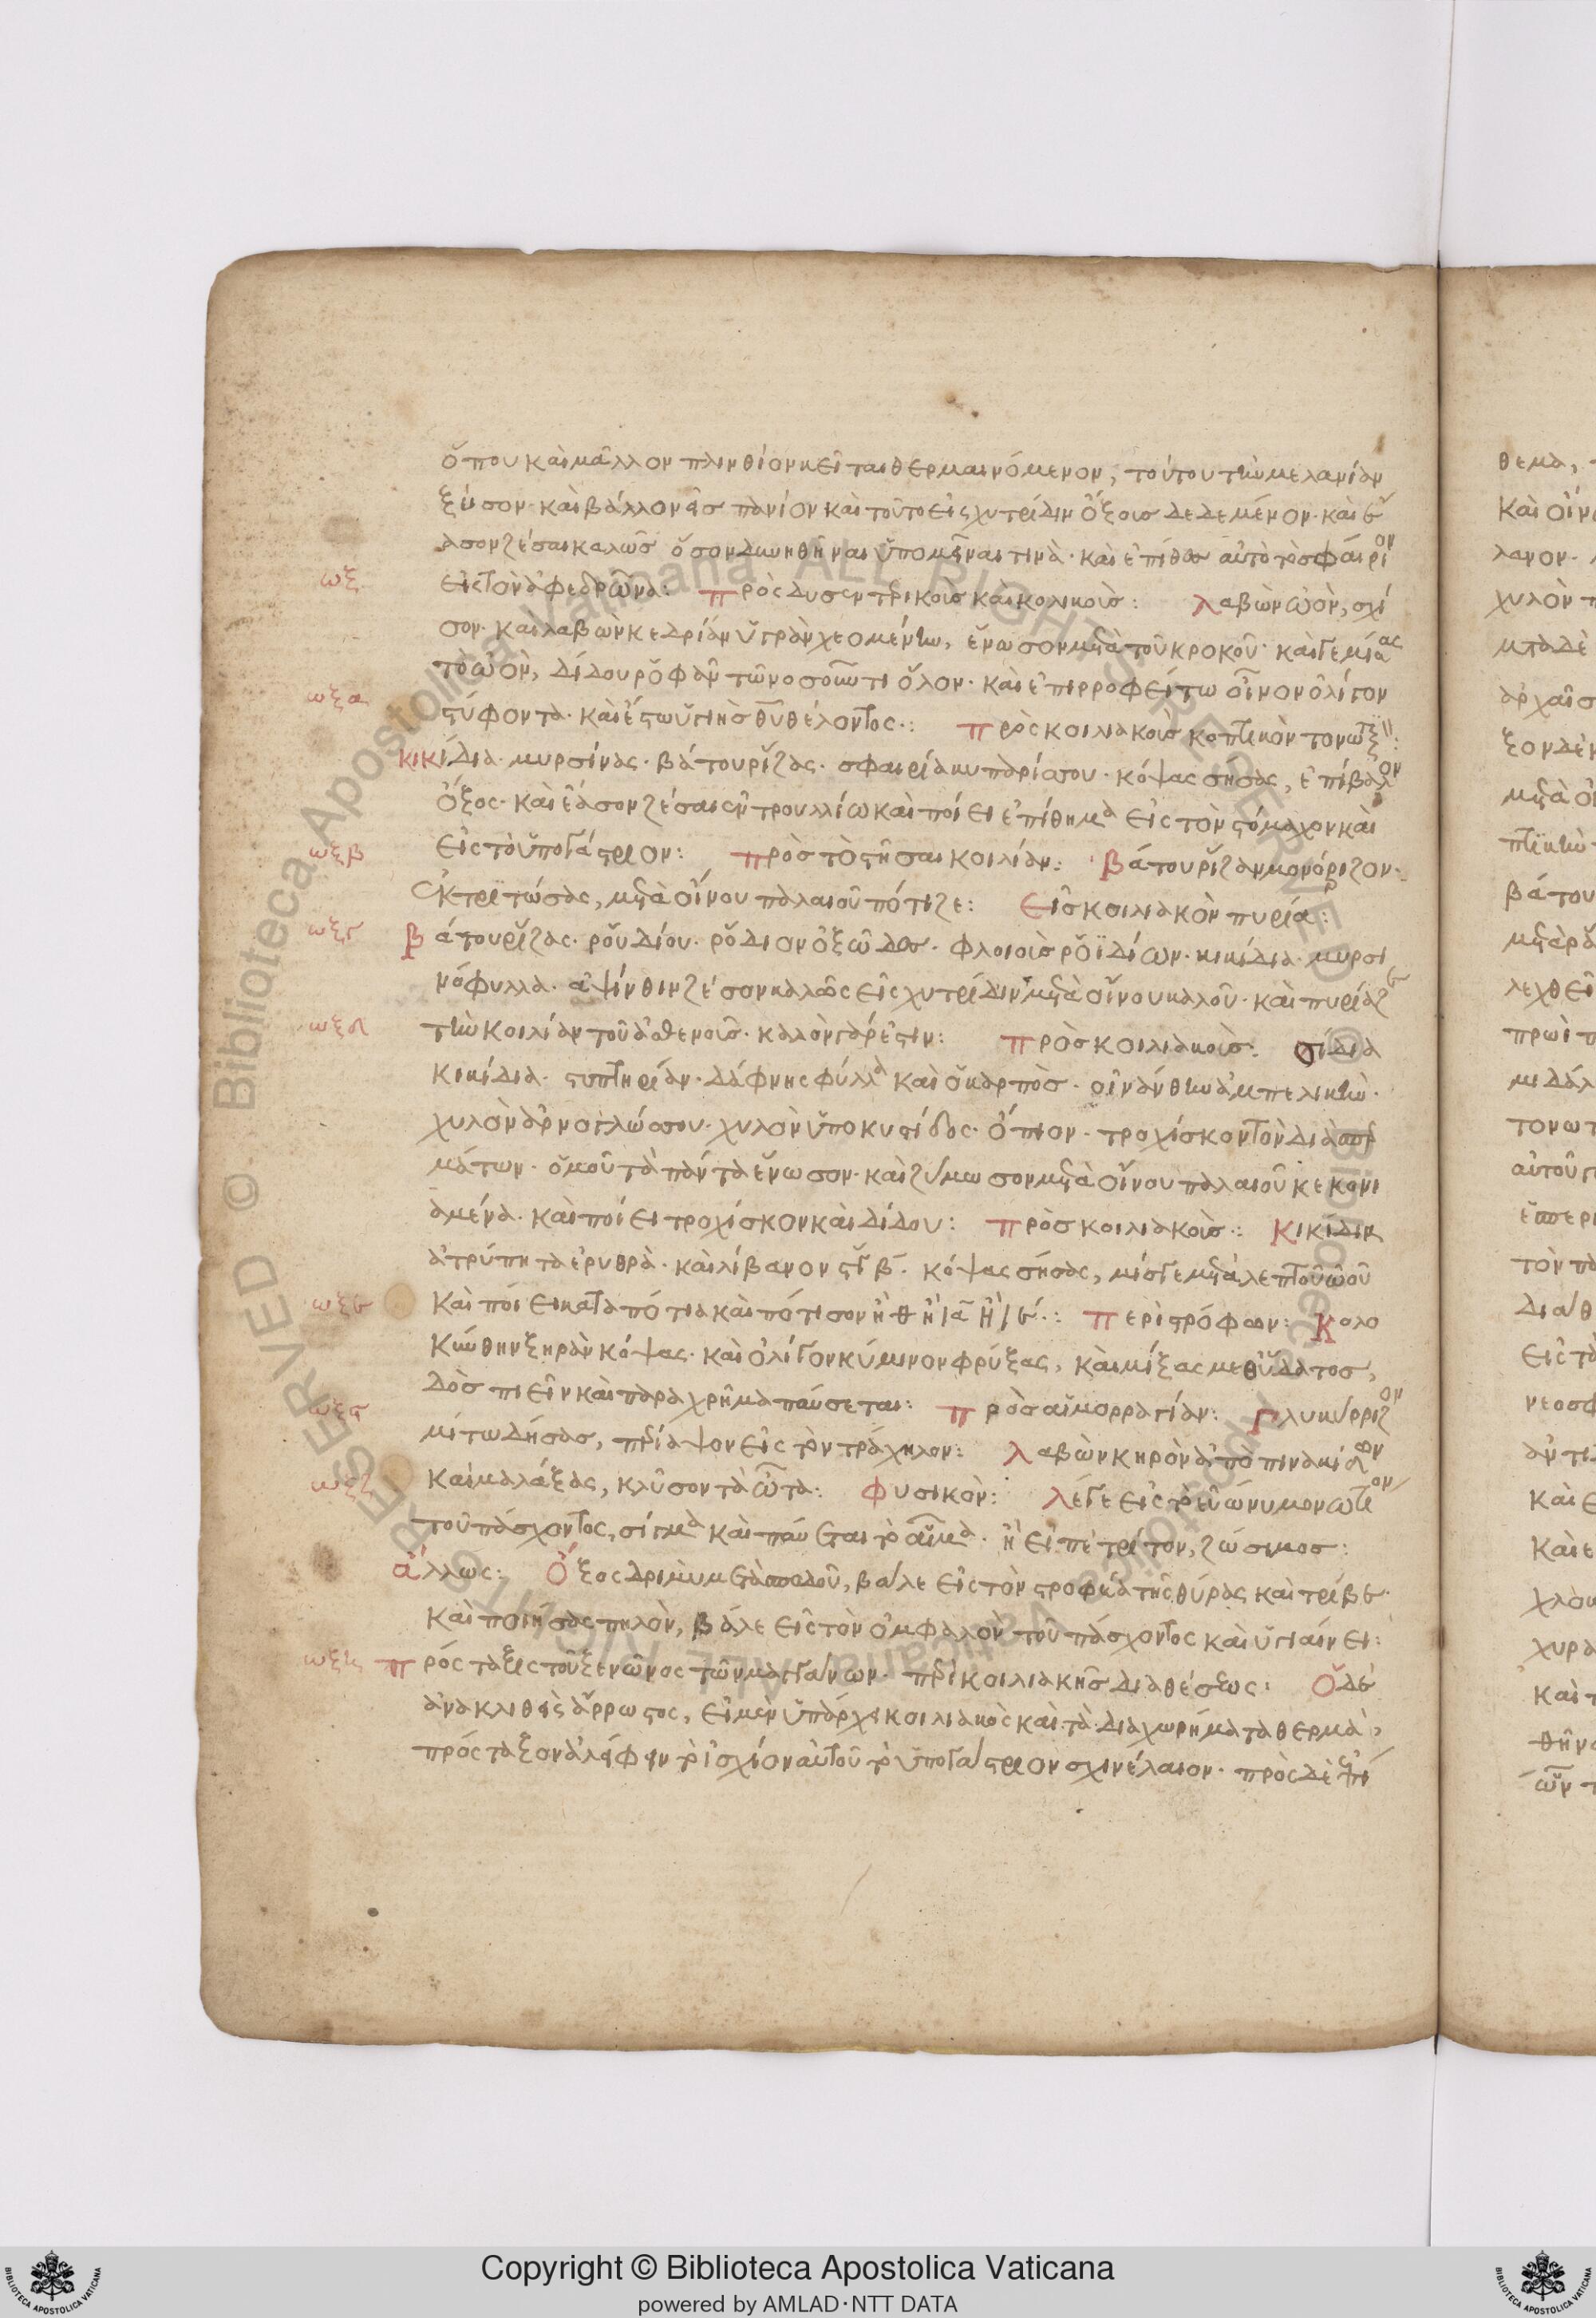 ὅπου καὶ μᾶλλον πλινθίον κεῖται θερμαινόμενον, τούτου τὴν μελανίαν
ξύσον· καὶ βάλλον εἰσ πανίον καὶ τοῦτο εἰς χυτρίδιν ὄξουσ δεδεμένον· καὶ ἔ
ασον ζέσαι καλῶσ ὅσον δυνηθῆναι ὑπομεῖναι τινὰ· καὶ ἐπίθεσ αὐτὸ τὸ σφαιρίον
ωξ εἰς τὸν ἀφεδρῶνα: πρὸς δυσεντρικοὺσ καὶ κολικοὺσ: λαβὼν ὠὸν, σχί
σον· καὶ λαβὼν κεδρίαν ὑγρὰν χεομένην, ἕνωσον μετὰ τοῦ κροκοῦ· καὶ γεμίσας
ωξα τὸ ὠὸν, δίδου ῥοφᾶν τῶ νοσοῦντι ὅλον· καὶ ἐπιρροφείτω οἶνον ὀλίγον
στύφοντα· καὶ ἔστω ὑγιὴσ θεοῦ θέλοντος·: πρὸς κοιλιακοὺσ
κικίδια· μυρσίνας· βάτου ῥίζας· σφαιρία κυπαρίσσου· κόψας σήσας, ἐπίβαλον
ὄξος· καὶ ἔασον ζέσαι ἐν τρουλλίω καὶ ποίει ἐπίθημα εἰς τὸν στόμαχον καὶ
ωξβ εἰς τὸ ὑπογάστριον: πρὸσ τὸ στῆσαι κοιλίαν: βάτου ῥίζαν μονόριζον·
ἐκτριτώσας, μετὰ οἴνου παλαιοῦ πότιζε: εἰσ κοιλιακὸν πυρία:
ωξγ βάτου ῥίζας· ῥοῦ δίου· ῥόδιον ὀξῶδεσ· φλοιοὺσ ῥοϊδίων· κικίδια· μυρσι
νόφυλλα· ἀψίνθιν ζέσον καλῶς εἰς χυτρίδιν μετὰ οἴνου καλοῦ· καὶ πυρίαζε
ωξδ τὴν κοιλίαν τοῦ ἀσθενοῦσ· καλὸν γάρ ἐστιν: πρὸσ κοιλιακοὺσ: σίδια
κικίδια· στυπτηρίαν· δάφνης φύλλα καὶ ὁ καρπὸσ· οἰνάνθην ἀμπελικὴν·
χυλὸν ἀρνογλώσσου· χυλὸν ὑποκυστίδος· ὄπιον· τροχίσκον τὸν διὰ σπερ
μάτων· ὁμοῦ τὰ πάντα ἕνωσον· καὶ ζύμωσον μετὰ οἴνου παλαιοῦ κεκονι
αμένα· καὶ ποίει τροχίσκον καὶ δίδου: πρὸσ κοιλιακοὺσ: κικίδια
ἀτρύπητα ἐρυθρὰ· καὶ λίβανον β· κόψας σήσας, μίσγε μετὰ λεπτοῦ ὠοῦ
ωξε καὶ ποίει καταπότια καὶ πότισον ἢ θ ἢ ια ἢ ιε·: περὶ στρόφων: κολο
κύνθην ξηρὰν κόψας· καὶ ὀλίγον κύμινον φρύξας, καὶ μίξας μεθ ὕδατοσ,
ωξς δὸσ πιεῖν καὶ παραχρῆμα παύσεται: πρὸσ αἱμορραγίαν: γλυκύρριζον
μίτω δήσασ, περίαψον εἰς τὸν τράχηλον: λαβὼν κηρὸν ἀπὸ πινακιδίων
ωξζ καὶ μαλάξας, κλῦσον τὰ ὦτα: φυσικὸν: λέγε εἰς τὸ εὐώνυμον ὠτίον
τοῦ πάσχοντος, σίγμα καὶ παύεται τὸ αἷμα· ἢ εἰπὲ τρίτον, ζώσιμοσ:
ἄλλως: ὄξος δριμὺ μετὰ σποδοῦ, βάλε εἰς τὸν στροφέα τῆς θύρας καὶ τρίβε·
καὶ ποιήσας πηλὸν, βάλε εἰς τὸν ὀμφαλὸν τοῦ πάσχοντος καὶ ὑγιαίνει:
ωξη πρόσταξις τοῦ ξενῶνος τῶν μαγγάνων· περὶ κοιλιακῆσ διαθέσεως: ὁ δὲ
ἀνακλιθεὶς ἄρρωστος, εἰ μὲν ὑπάρχει κοιλιακὸς καὶ τὰ διαχωρήματα θερμὰ,
πρόσταξον ἀλείφειν τὸ ἰσχίον αὐτοῦ τὸ ὑπογάστριον σχινέλαιον· πρὸς δὲ
θεμα,
λανον·
χυλὸν
βάτου
πρωὶ
Copyright © Biblioteca Apostolica Vaticana
powered by AMLAD·NTT DATA